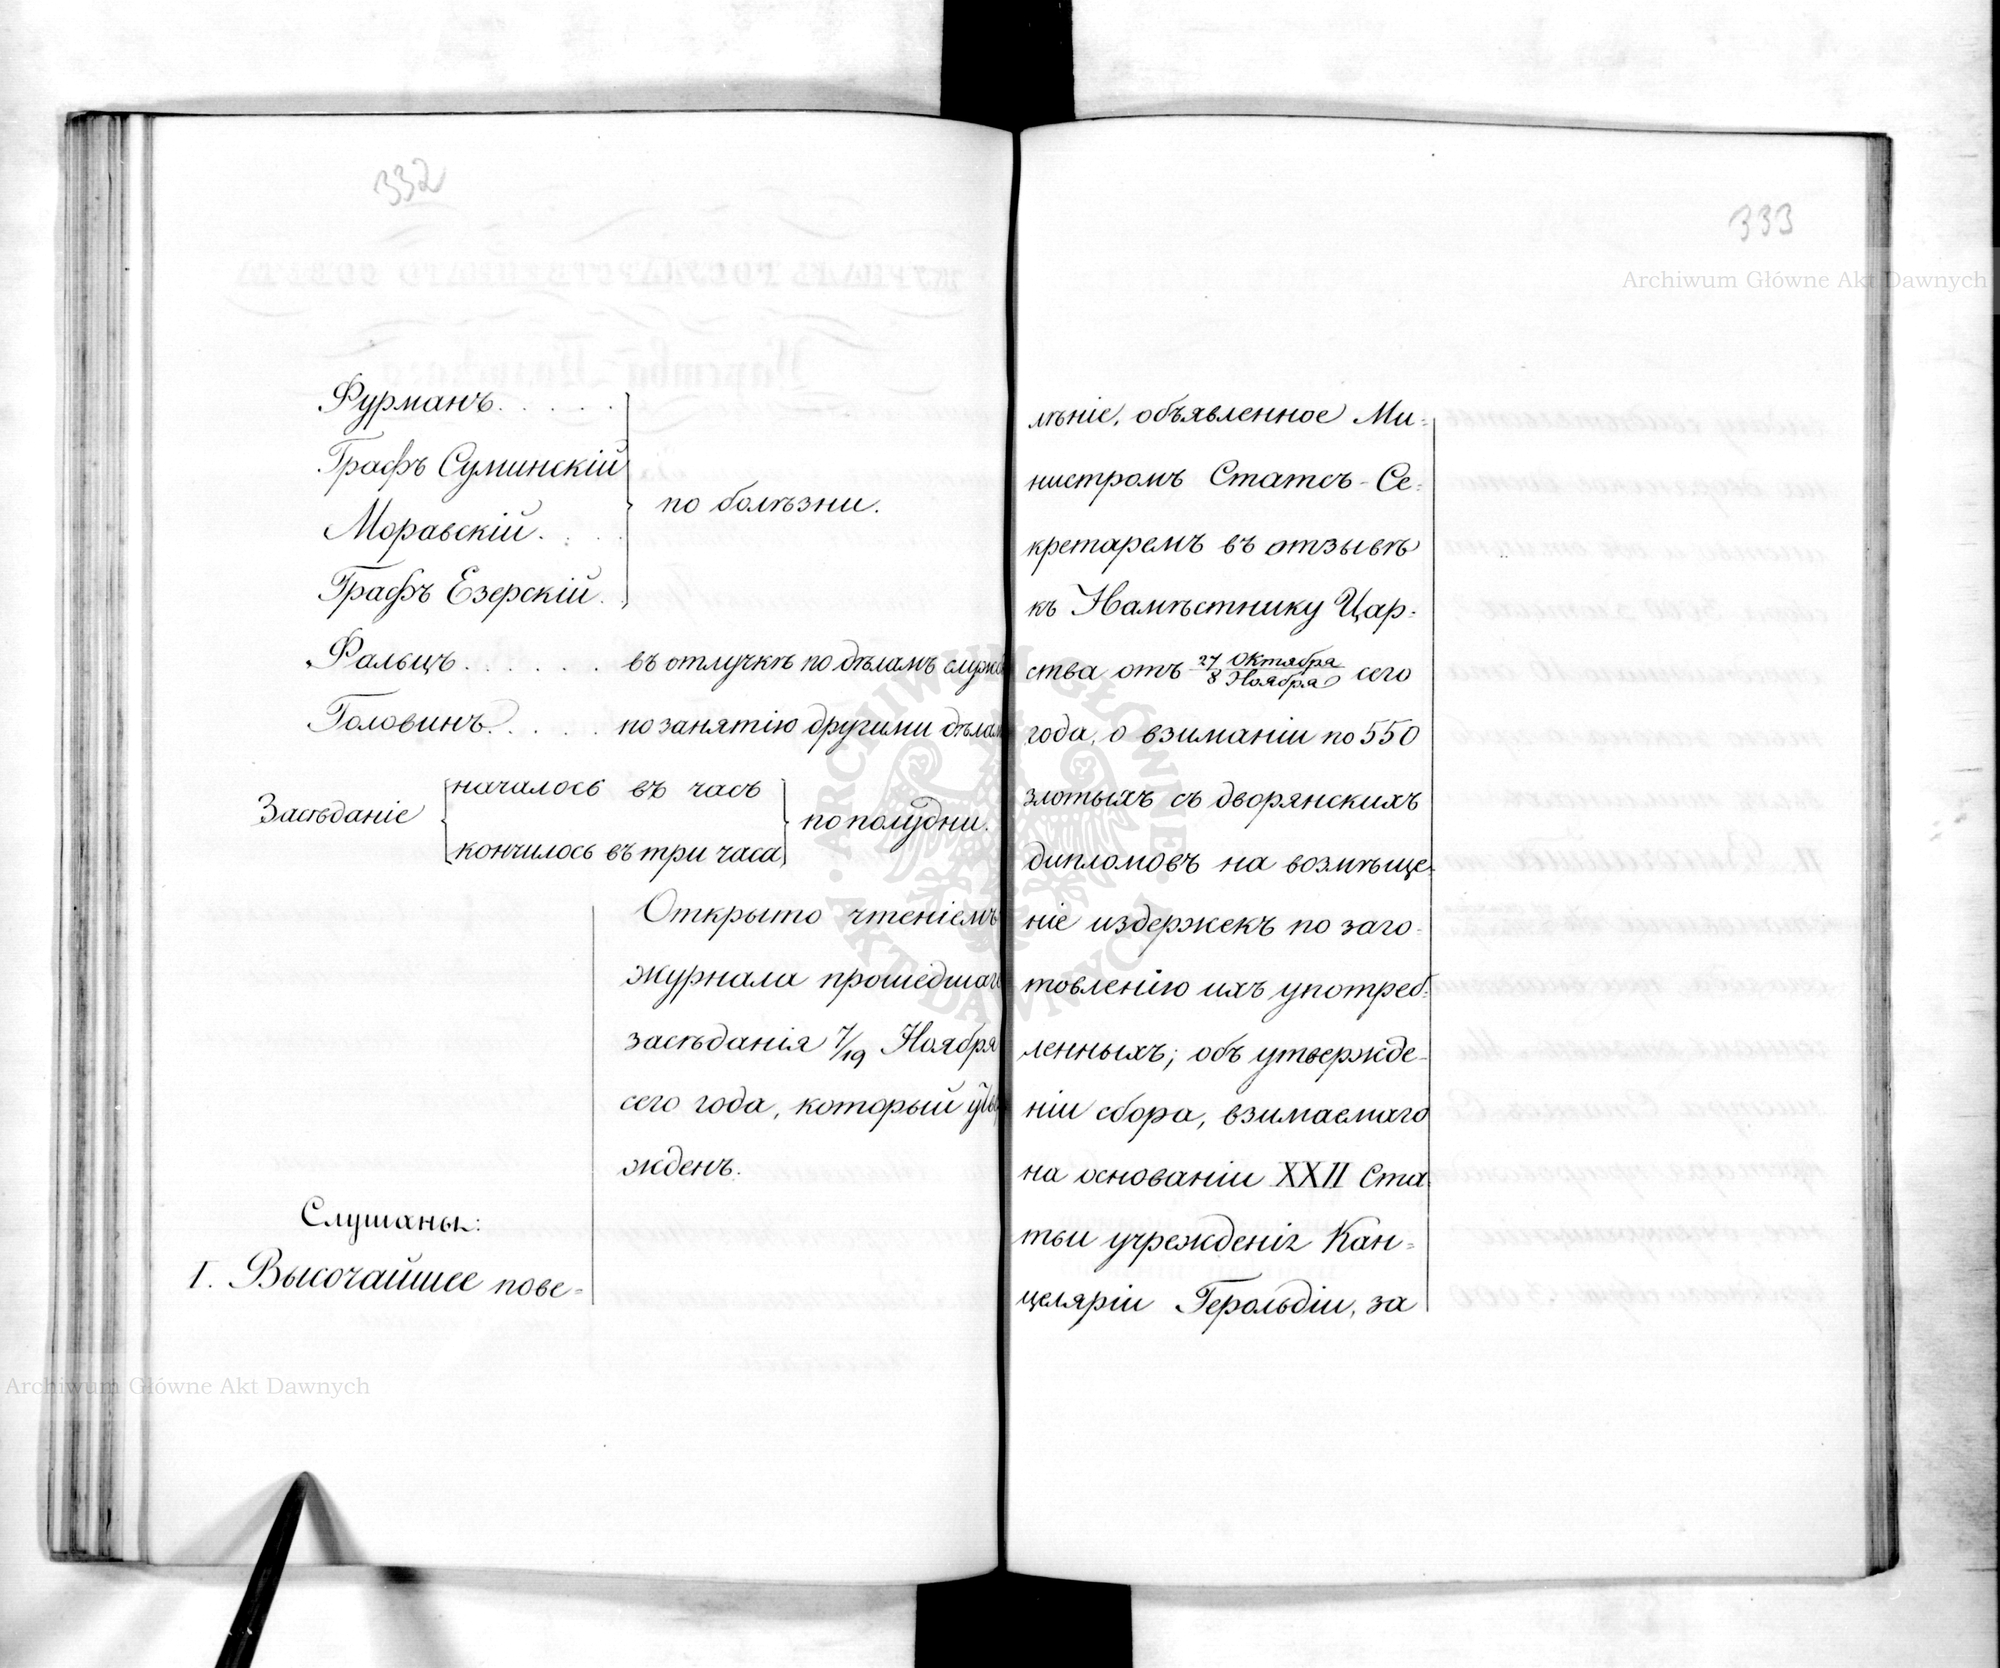 332
Фурманъ. . . . .
Графъ Суминскій
Моравскій. . .
Графъ Езерскій.
по болѣзни.
Фальцъ. . . . . . въ отлучкѣ по дѣламъ служб
Головинъ. . . . . по занятію другими дѣлам
Засѣданіе
началось въ часъ
кончилось въ три часа
по полудни.
Открыто чтеніемъ
журнала прошедшаго
засѣданія 7/19 Ноября
сего года, который утвер
жденъ.
Слушаны:
I. Высочайшее пове=
333
лѣніе, объявленное Ми=
нистромъ Статсъ-Се=
кретаремъ въ отзывѣ
къ Намѣстнику Цар-
ства отъ 27 Октября / 8 Ноября сего
года, о взиманіи по 550
злотыхъ съ дворянскихъ
дипломовъ на возмѣще-
ніе издержекъ по заго-
товленію ихъ употреб-
ленныхъ; объ утвержде-
ніи сбора, взимаемаго
на основаніи XXII Ста
тьи учрежденія Кан=
целяріи Герольдіи, за
Archiwum Główne Akt Dawnych
Archiwum Główne Akt Dawnych
ARCHIWUM GŁÓWNE AKT DAWNYCH